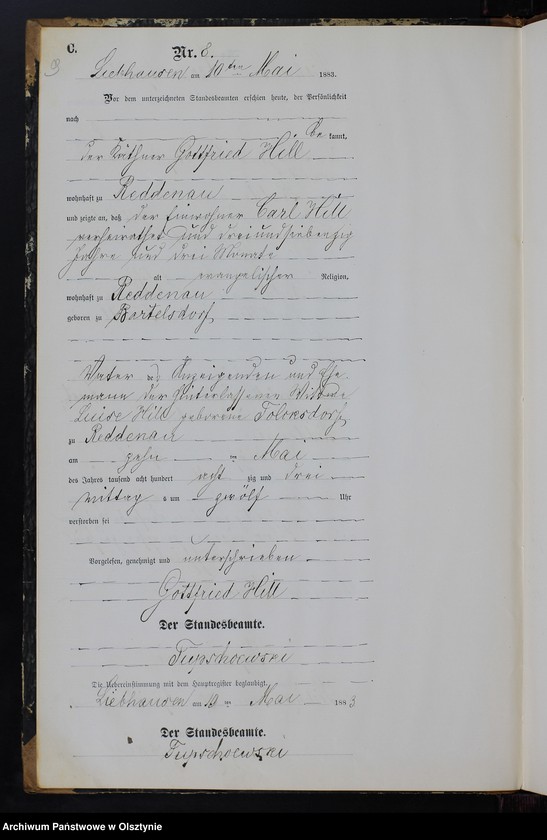 C.
Nr. 8.
9
Liebhausen am 10ten Mai 1883.
Vor dem unterzeichneten Standesbeamten erschien heute, der Persönlichkeit
nach
be kannt,
der Käthner Gottfried Hill
wohnhaft zu Reddenau
und zeigte an, daß der Einwohner Carl Hill
verheirathet und dreiundsiebenzig
Jahre und drei Monate
alt evangelischer Religion,
wohnhaft zu Reddenau
geboren zu Bartelsdorf
Vater des Anzeigenden und Ehe
mann der hinterlassenen Wittwe
Luise Hill geborene Tolcksdorf
zu Reddenau
am zehn ten Mai
des Jahres tausend acht hundert acht zig und drei
Mittag s um zwölf Uhr
verstorben sei
Vorgelesen, genehmigt und unterschrieben
Gottfried Hill
Der Standesbeamte.
Die Uebereinstimmung mit dem Hauptregister beglaubigt.
Liebhausen am 10 ten Mai 1883
Der Standesbeamte.
Archiwum Państwowe w Olsztynie